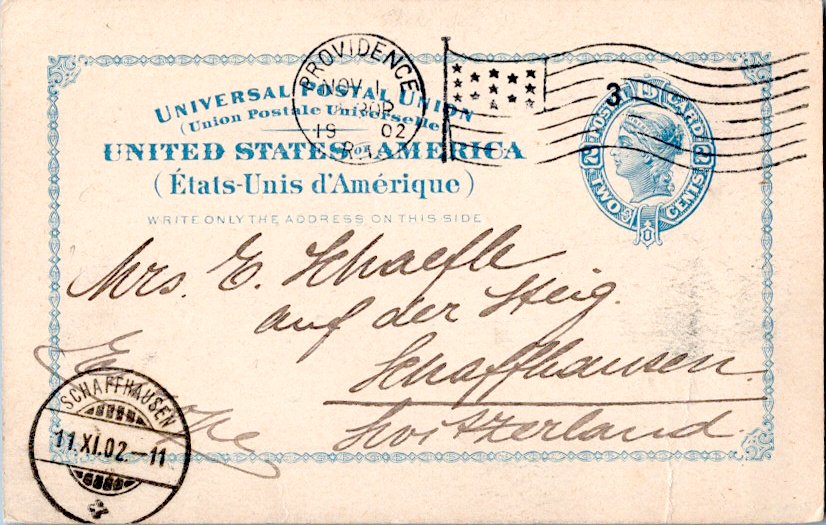 PROVIDENCE
NOV 1
30P
19 02
R.I.
3
UNIVERSAL POSTAL UNION
(Union Postale Universelle)
UNITED STATES OF AMERICA
(États-Unis d'Amérique)
WRITE ONLY THE ADDRESS ON THIS SIDE
POSTAL CARD
2 2
TWO CENTS
Mrs. E. Schaefle
auf der Steig.
Schaffhausen.
Switzerland.
SCHAFFHAUSEN
11.XI.02.-11